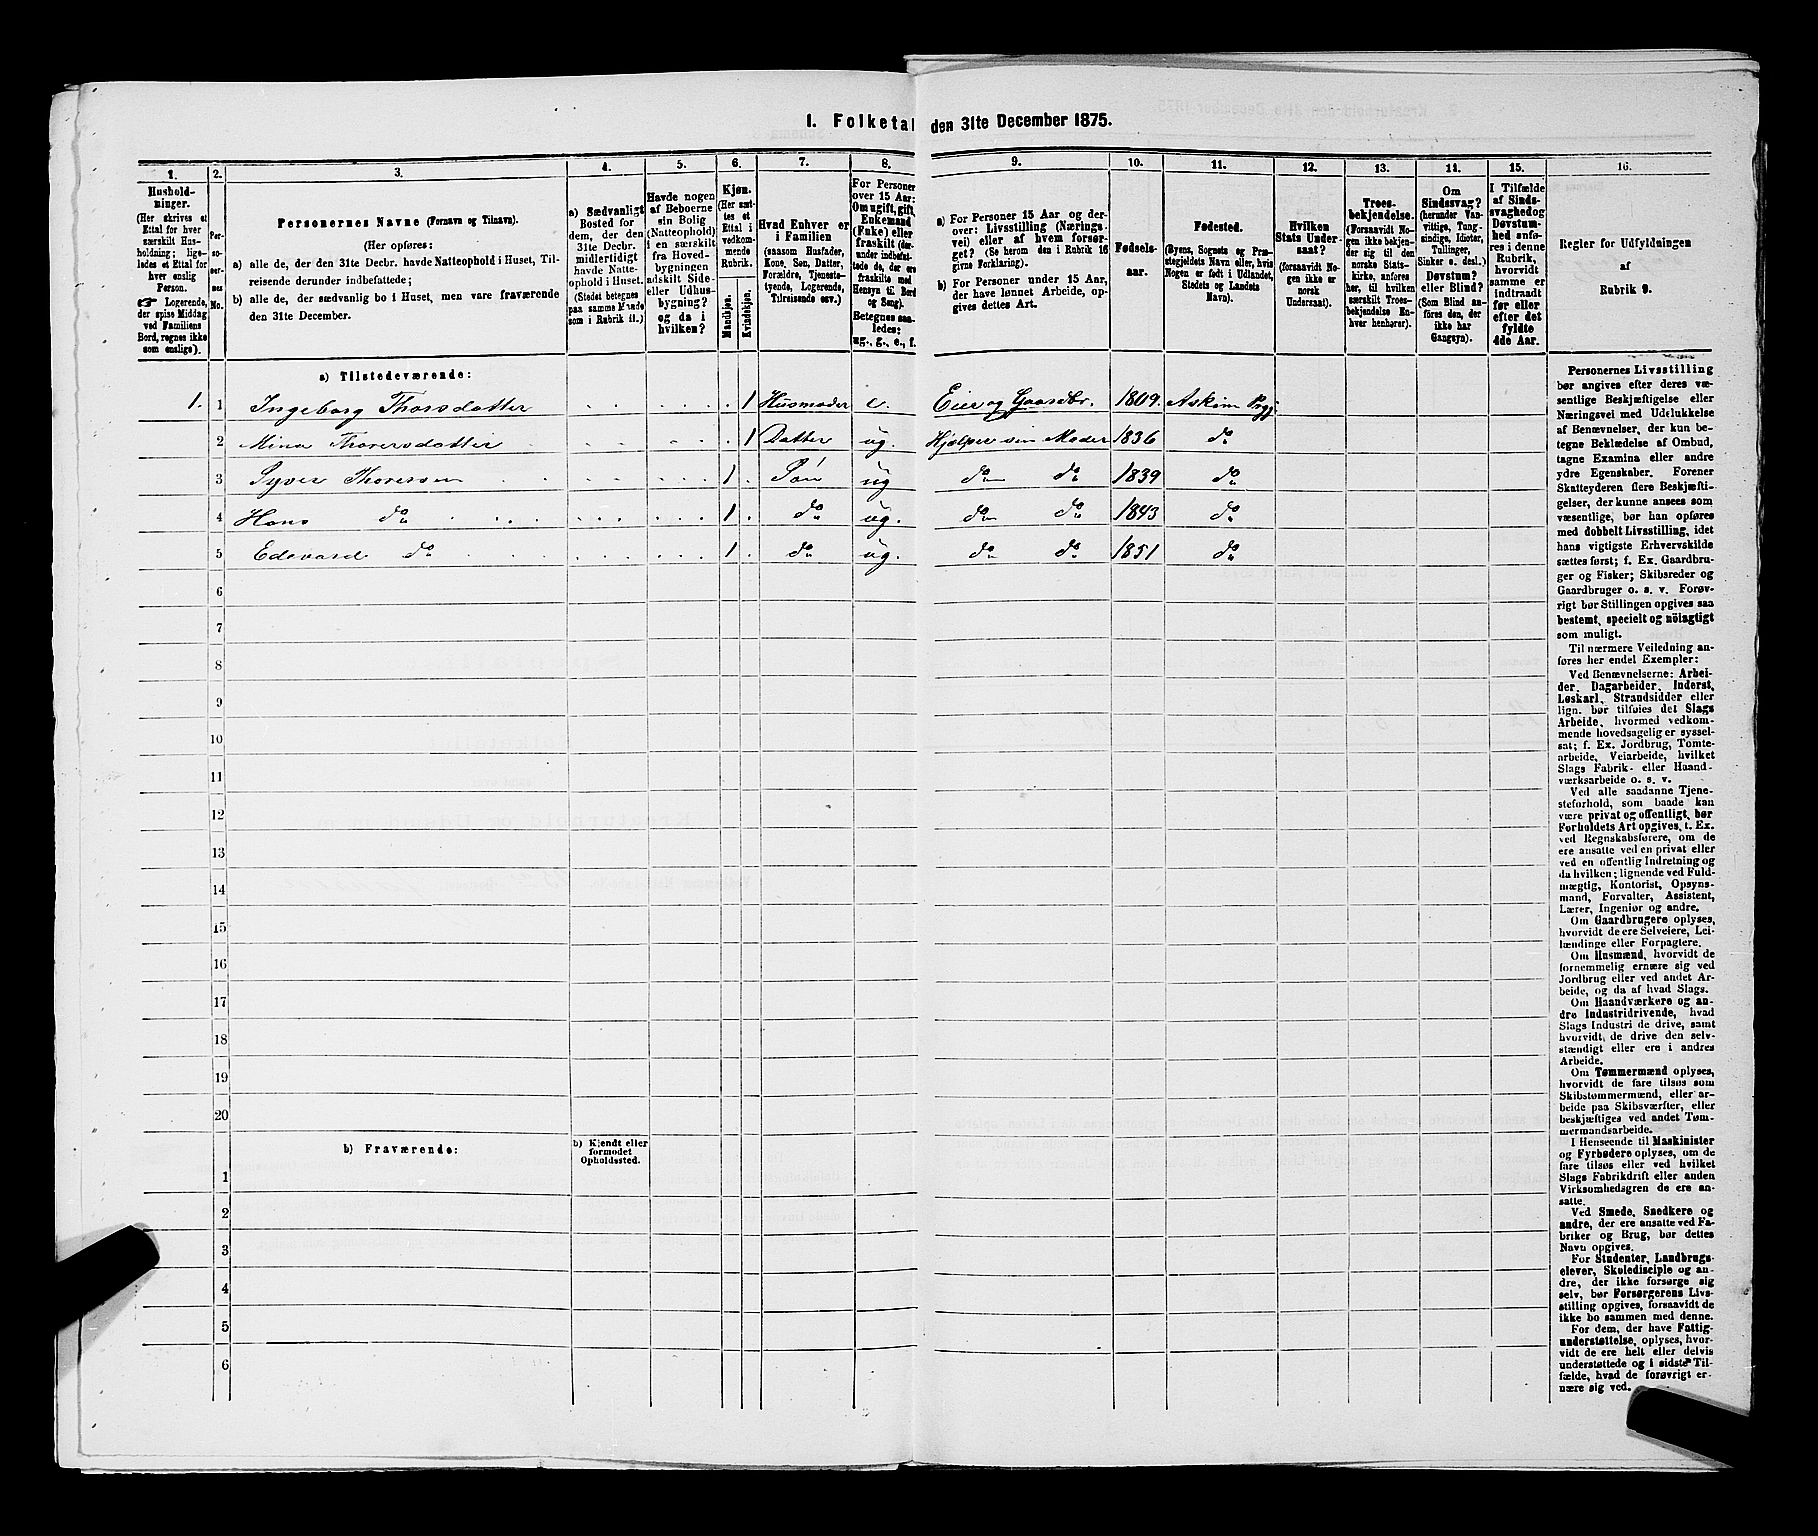 I. Folketal den 31te December 1875.
1. 2. 3. 4. 5. 6. 7. 8. 9. 10. 11. 12. 13. 14. 15. 16.
Hushold-
ninger.
(Her skrives et
Ettal for hver
særskilt Hus-
holdning; lige-
ledes et Ettal for
hver enslig
Person.
☞ Logerende,
der spise Middag
ved Familiens
Bord, regnes ikke
som enslige).
Per-
so-
ner-
nes
No.
Personernes Navne (Fornavn og Tilnavn).
(Her opføres:
a) alle de, der den 31te Decbr. havde Natteophold i Huset, Til-
reisende derunder indbefattede;
b) alle de, der sædvanlig bo i Huset, men vare fraværende
den 31te December.
a) Sædvanligt
Bosted for
dem, der den
31te Decbr.
midlertidigt
havde Natte-
ophold i Huset.
(Stedet betegnes
paa samme Maade
som i Rubrik 11.)
Havde nogen
af Beboerne
sin Bolig
(Natteophold)
i en særskilt
fra Hoved-
bygningen
adskilt Side-
eller Udhus-
bygning?
og da i
hvilken?
Kjøn.
(Her sæt-
tes et
Ettal i
vedkom-
mende
Rubrik.
Mandkjøn.
Kvindekjøn.
Hvad Enhver er
i Familien
(saasom Husfader,
Kone, Søn, Datter,
Forældre, Tjeneste-
tyende, Logerende,
Tilreisende osv.)
For Personer
over 15 Aar:
Om ugift, gift,
Enkemand
(Enke) eller
fraskilt (der-
under indbefat-
tede de, der ere
fraskilte med
Hensyn til Bord
og Seng).
Betegnes saa-
ledes:
ug., g., e., f.
a) For Personer 15 Aar og der-
over: Livsstilling (Nærings-
vei) eller af hvem forsør-
get? (Se herom den i Rubrik 16
givne Forklaring).
b) For Personer under 15 Aar,
der have lønnet Arbeide, op-
gives dettes Art.
Fødsels-
aar.
Fødested.
(Byens, Sognets og Præ-
stegjeldets Navn eller, hvis
Nogen er født i Udlandet,
Stedets og Landets
Navn).
Hvilken
Stats Under-
saat?
(forsaavidt No-
gen ikke er
norsk
Undersaat).
Troes-
bekjendelse.
(Forsaavidt No-
gen ikke bekjen-
der sig til den
norske Stats-
kirke, anføres
her, til hvilken
særskilt Troes-
bekjendelse En-
hver henhører).
Om
Sindssvag?
(herunder Van-
vittige, Tung-
sindige, Idioter,
Tullinger,
Sinker o. desl.)
Døvstum?
eller Blind?
(Som Blind an-
føres den, der
ikke har
Gangsyn).
I Tilfælde
af Sinds-
svaghed og
Døvstum-
hed anfø-
res i denne
Rubrik,
hvorvidt
samme er
indtraadt
før eller
efter det
fyldte
4de Aar.
Regler for Udfyldningen
af
Rubrik 9.
a) Tilstedeværende:
1. 1 Ingeborg Thorsdatter 1 Husmoder e. Eier og Gaardbr. 1809. Askim Prgj
2 Mina Thorersdatter 1 Datter ug. Hjælper sin Moder 1836 do
3 Syver Thoresen 1 Søn ug do do 1839 do
4 Hans do 1 do ug. do do 1843 do
5 Edevard do 1 do ug. do do 1851 do
6
7
8
9
10
11
12
13
14
15
16
17
18
19
20
b) Fraværende:
b) Kjendt eller
formodet
Opholdssted.
1
2
3
4
5
6
Personernes Livsstilling
bør angives efter deres væ-
sentlige Beskjæftigelse eller
Næringsvei med Udelukkelse
af Benævnelser, der kun be-
tegne Beklædelse af Ombud,
tagne Examina eller andre
ydre Egenskaber. Forener
Skatteyderen flere Beskjæfti-
gelser, der kunne ansees som
væsentlige, bør han opføres
med dobbelt Livsstilling, idet
hans vigtigste Erhvervskilde
sættes først; f. Ex. Gaardbru-
ger og Fisker; Skibsreder og
Gaardbruger o. s. v. Forøv-
rigt bør Stillingen opgives saa
bestemt, specielt og nöiagtigt
som muligt.
Til nærmere Veiledning an-
føres her endel Exempler:
Ved Benævnelserne: Arbei-
der, Dagarbeider, Inderst,
Løskarl, Strandsidder eller
lign. bør tilføies det Slags
Arbeide, hvormed vedkom-
mende hovedsagelig er syssel-
sat; f. Ex. Jordbrug, Tomte-
arbeide, Veiarbeide, hvilket
Slags Fabrik- eller Haand-
værksarbeide o. s. v.
Ved alle saadanne Tjene-
steforhold, som baade kan
være privat og offentligt, bør
Forholdets Art opgives, t. Ex.
ved Regnskabsførere, om de
ere ansatte ved en privat eller
ved en offentlig Indretning og
da hvilken; lignende ved Fuld-
mægtig, Kontorist, Opsyns-
mand, Forvalter, Assistent,
Lærer, Ingeniør og andre.
Om Gaardbrugere oplyses,
hvorvidt de ere Selveiere, Lei-
lændinge eller Forpagtere.
Om Husmænd, hvorvidt de
fornemmelig ernære sig ved
Jordbrug eller ved andet Ar-
beide, og da af hvad Slags.
Om Haandværkere og an-
dre Industridrivende, hvad
Slags Industri de drive, samt
hvorvidt, de drive den selv-
stændigt eller ere i andres
Arbeide.
Om Tømmermænd oplyses,
hvorvidt de fare tilsøs som
Skibstømmermænd, eller ar-
beide paa Skibsværfter, eller
beskjæftiges ved andet Tøm-
mermandsarbeide.
I Henseende til Maskinister
og Fyrbødere oplyses, om de
fare tilsøs eller ved hvilket
Slags Fabrikdrift eller anden
Virksomhedsgren de ere an-
satte.
Ved Smede, Snedkere og
andre, der ere ansatte ved Fa-
briker og Brug, bør dettes
Navn opgives.
For Studenter, Landbrugs-
elever, Skoledisciple og an-
dre, der ikke forsørge sig
selv, bør Forsørgerens Livs-
stilling opgives, forsaavidt de
ikke bo sammen med denne.
For dem, der have Fattig-
understøttelse, oplyses, hvor-
vidt de ere helt eller delvis
understøttede og i sidste Til-
fælde, hvad de forøvrigt er-
nære sig ved.